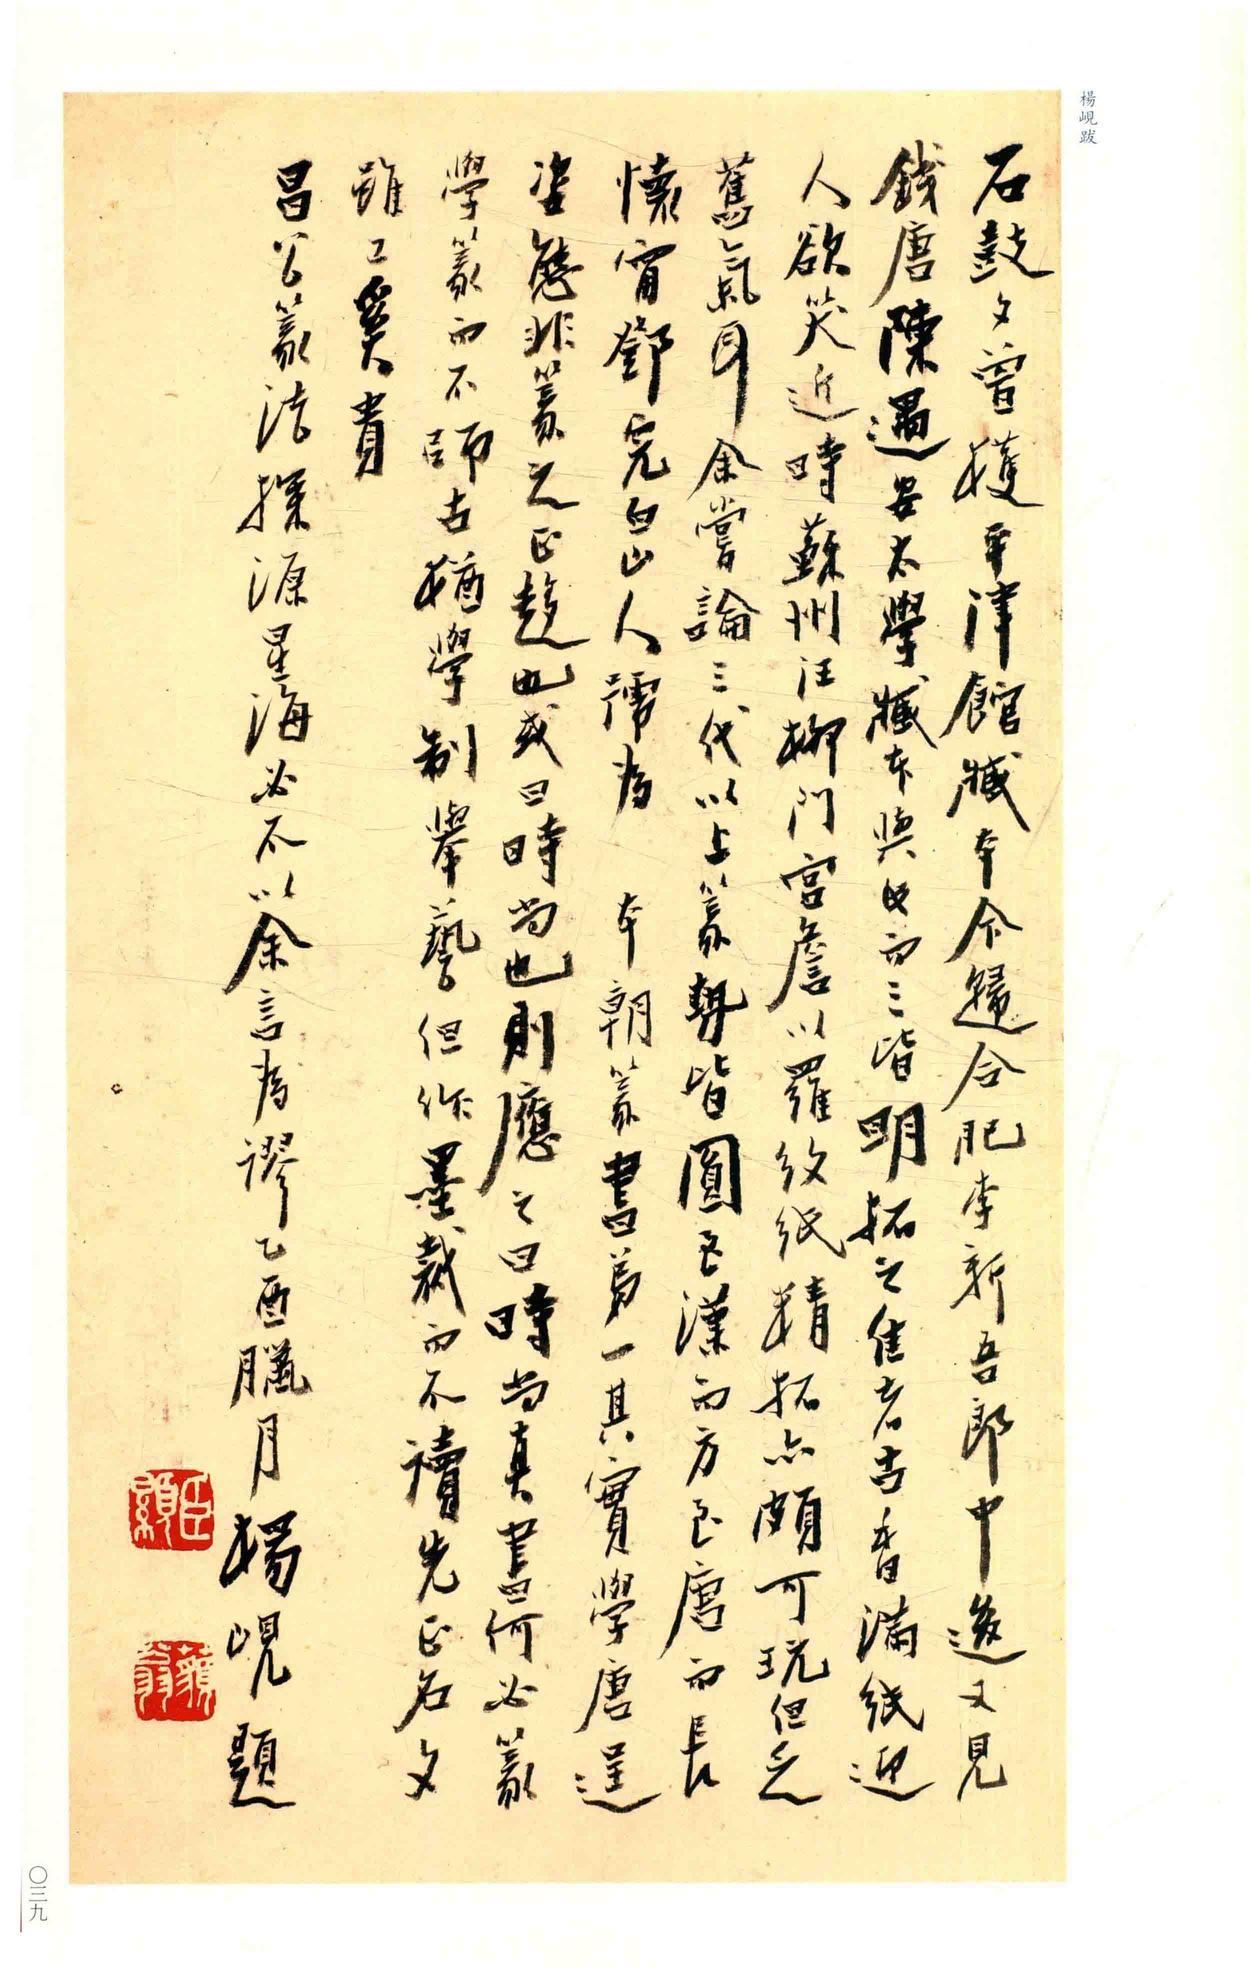 楊峴跋
石鼓文曾獲平津館臧本今歸合肥李新吾郎中邊又見
錢唐陳遇安太學臧本與此而三皆明拓之佳者古香滿紙迎
人欲笑近時蘇州汪柳門宮詹以羅紋紙精拓亦頗可玩但乏
舊氣耳余嘗論三代以上篆勢皆圓至漢而方至唐而長
懷甯鄧完白山人號為 本朝篆書第一其實學唐逞
姿態非篆之正趨也或曰時尚也則應之曰時尚真書何必篆
學篆而不師古猶學制舉藝但作墨裁而不讀先正名文
雖工奚貴
昌公篆法探源星海必不以余言為謬乙酉臘月楊峴題
臣顯
藐翁
〇三九